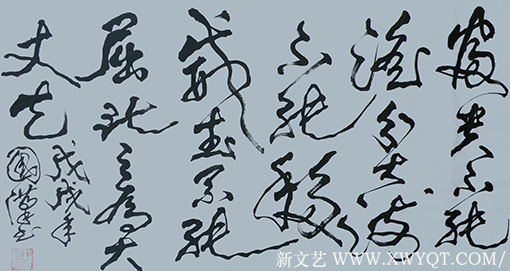 富贵不能
淫贫贱
不能移
威武不能
屈此之为大
丈夫
戊戌年
新文艺 WWW.XWYQT.COM/